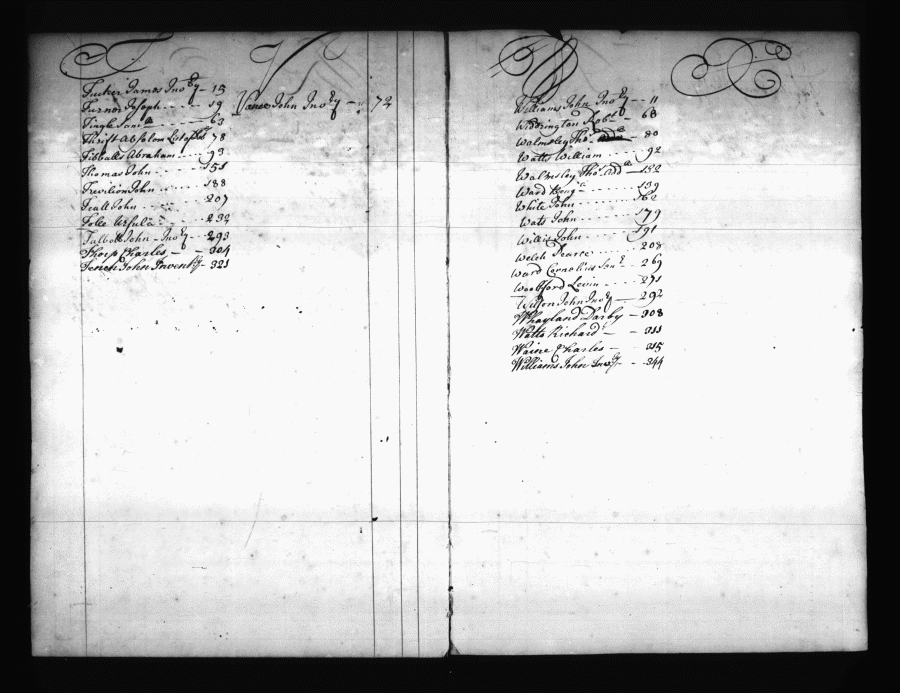 T
Tucker James Inv.ry - 15
Turner Joseph - - - - 19
Tingle Sam.l - - 63
Thrift Absolom List of Dbts 78
Tibballs Abraham - - - - 93
Thomas John - - - - 151
Trevilion John - - - 188
John - - - - 207
Ursula - - - 232
Talbott John - Inv.ry - 293
Thorp Charles - - 304
Tench John Invent.ry - 321
V
Vance John Inv.ry - - - 72
W
Williams John Inv.ry - - 11
Widdrington Rob.t - - 68
Walmsley Tho.s - - 80
Watts William - - - - 92
Walmsley Tho.s add.l - 132
Ward Benj.a - - - - 139
White John - - - - 162
Wats John - - - - 179
Willis John - - - - 191
Welch Pearce - - - - 208
Ward Cornelius Sen.r - - 269
Woolford Levin - - - 271
Wilson John Inv.ry - 292
Whayland Darby - 308
Watts Richard - - 311
Waine Charles - - 315
Williams John Inv.ry - - 344